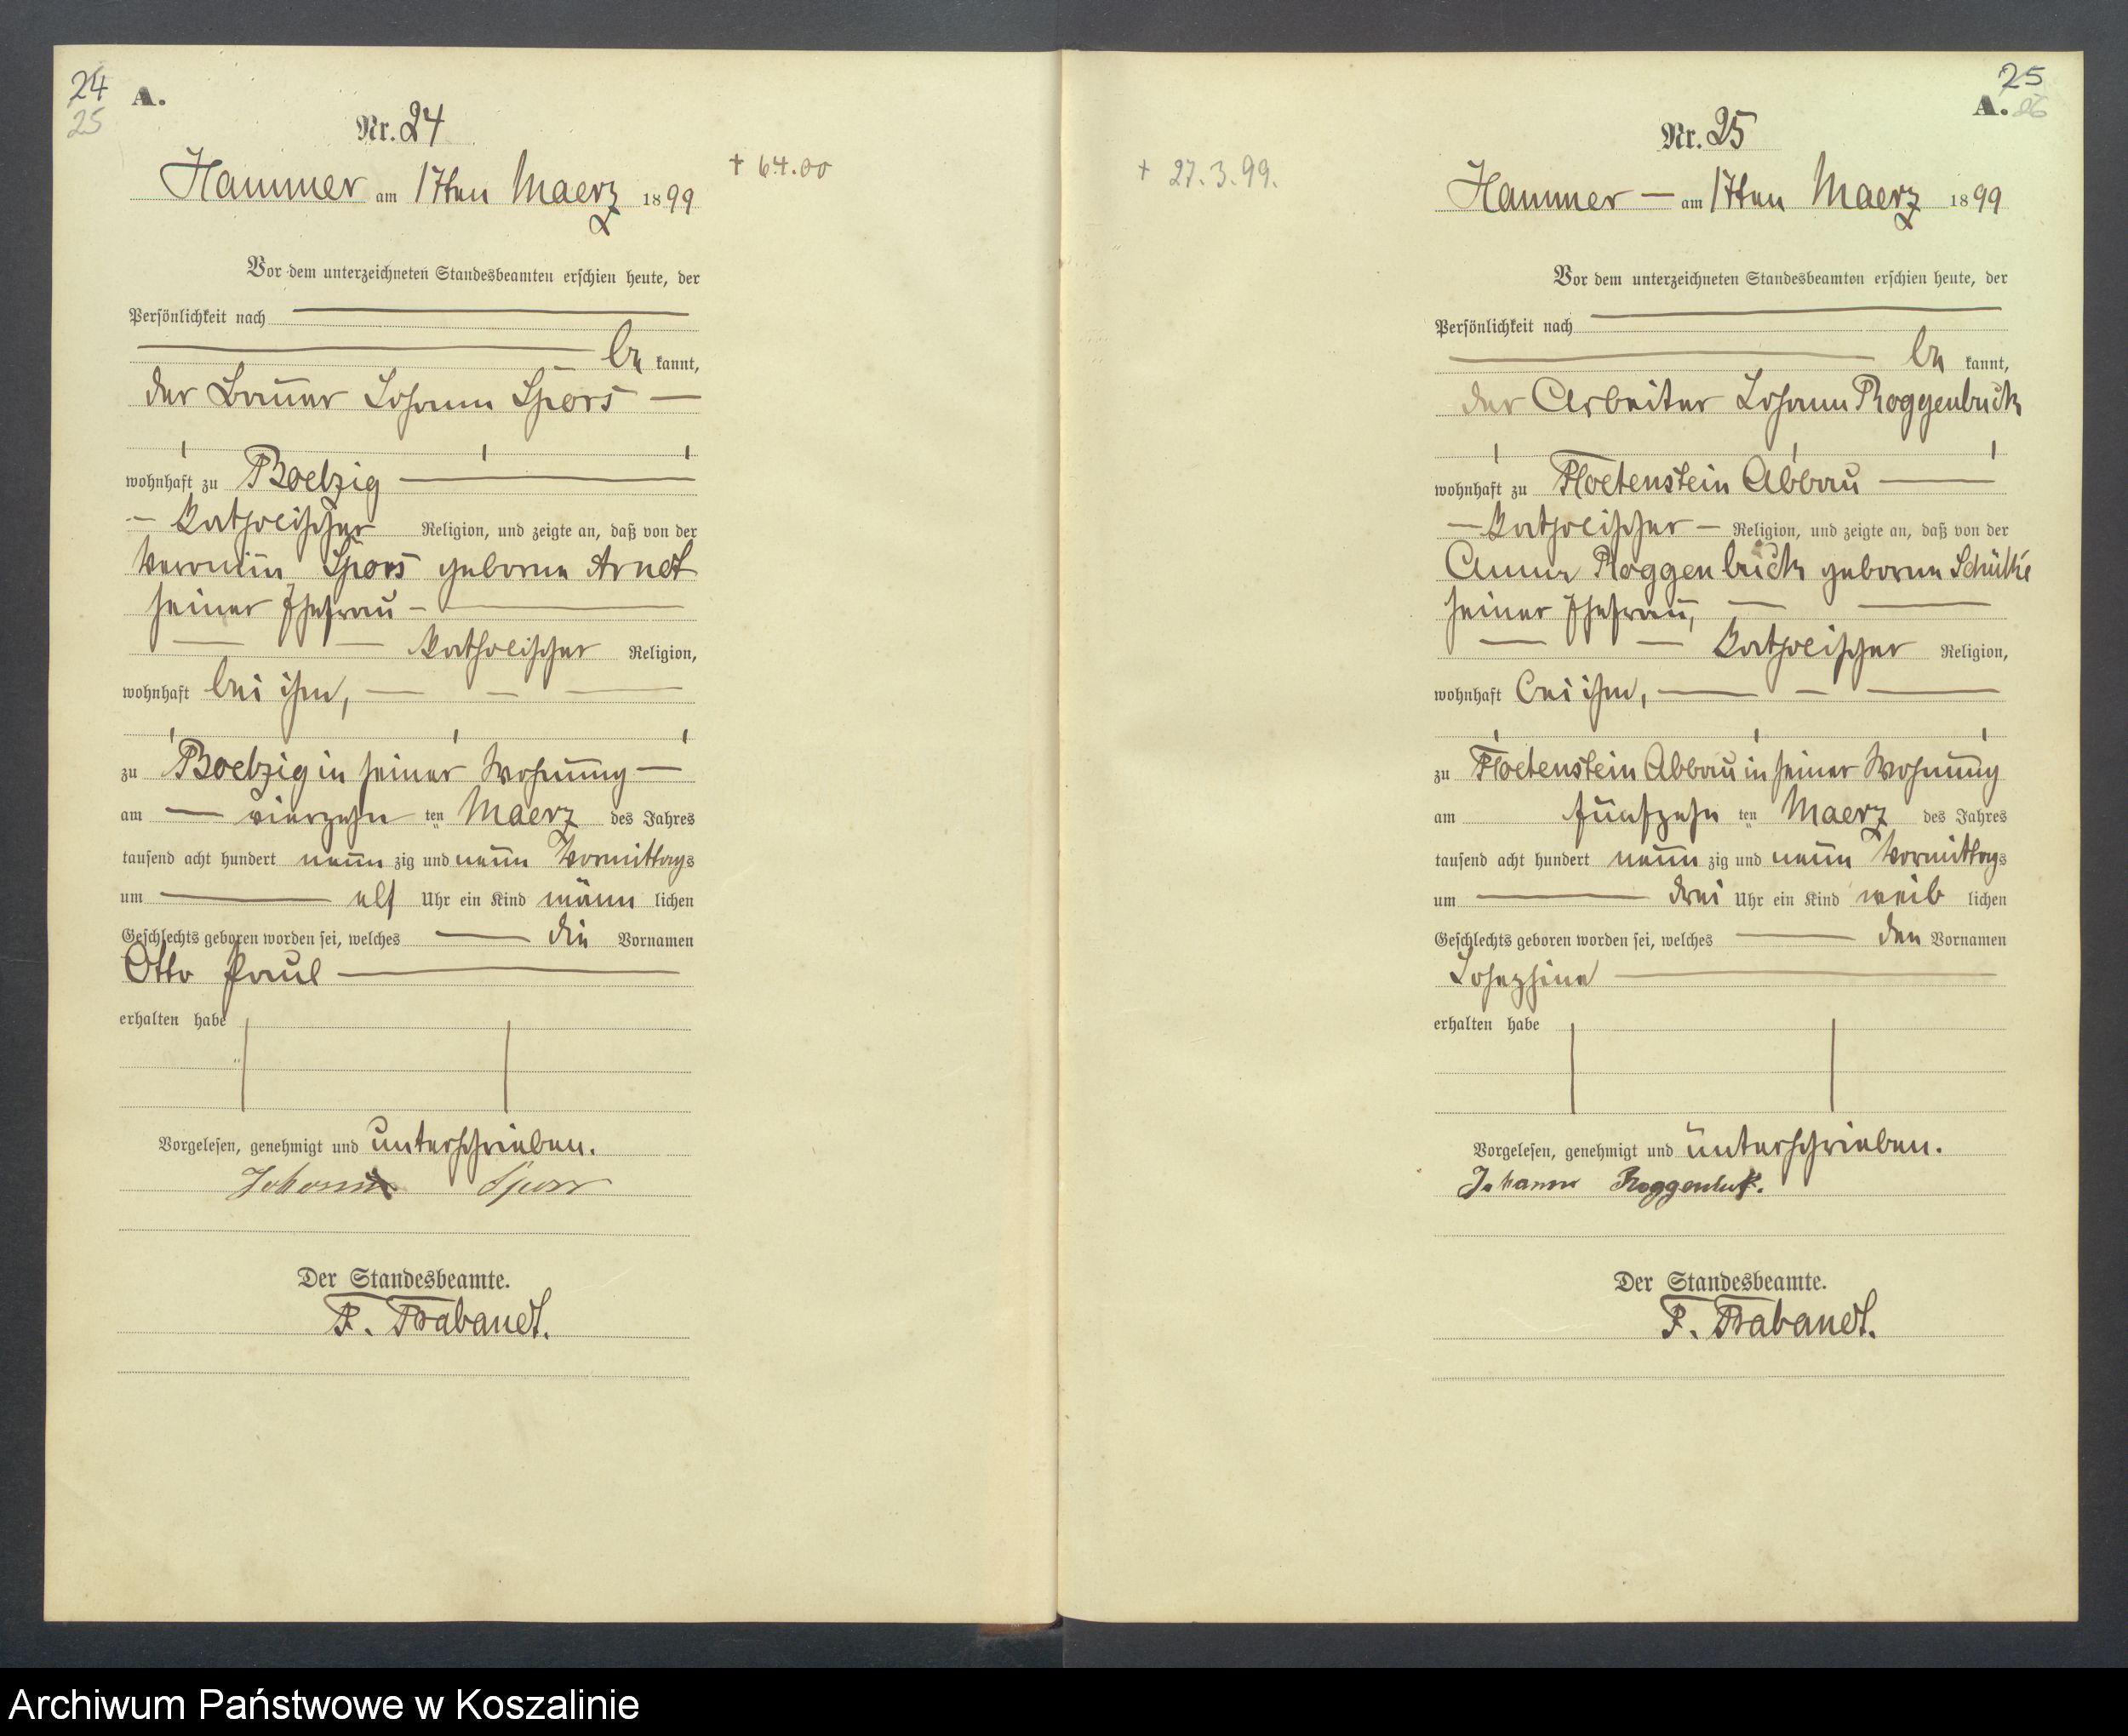 24
25
A.
Nr. 24
Hammer am 17ten Maerz 1899
+ 6.4.00
Vor dem unterzeichneten Standesbeamten erschien heute, der
Persönlichkeit nach
be kannt,
der Bauer Johann Spors
wohnhaft zu Boelzig
katholischer Religion, und zeigte an, daß von der
Spors geborne Arndt
seiner Ehefrau
katholischer Religion,
wohnhaft bei ihm,
zu Boelzig in seiner Wohnung
am vierzehn ten Maerz des Jahres
tausend acht hundert neun zig und neun Vormittags
um elf Uhr ein Kind männ lichen
Geschlechts geboren worden sei, welches die Vornamen
Otto Paul
erhalten habe
Vorgelesen, genehmigt und unterschrieben.
Johann Spors
Der Standesbeamte.
F. Brabandt.
25
A. 26
Nr. 25
+ 27.3.99.
Hammer am 17ten Maerz 1899
Vor dem unterzeichneten Standesbeamten erschien heute, der
Persönlichkeit nach
be kannt,
der Arbeiter Johann Roggenbuck
wohnhaft zu Floetenstein Abbau
katholischer Religion, und zeigte an, daß von der
Anna Roggenbuck geborne Schülke
seiner Ehefrau,
katholischer Religion,
wohnhaft bei ihm,
zu Floetenstein Abbau in seiner Wohnung
am fünfzehn ten Maerz des Jahres
tausend acht hundert neun zig und neun Vormittags
um drei Uhr ein Kind weib lichen
Geschlechts geboren worden sei, welches den Vornamen
Josephine
erhalten habe
Vorgelesen, genehmigt und unterschrieben.
Johann Roggenbuk.
Der Standesbeamte.
F. Brabandt.
Archiwum Państwowe w Koszalinie